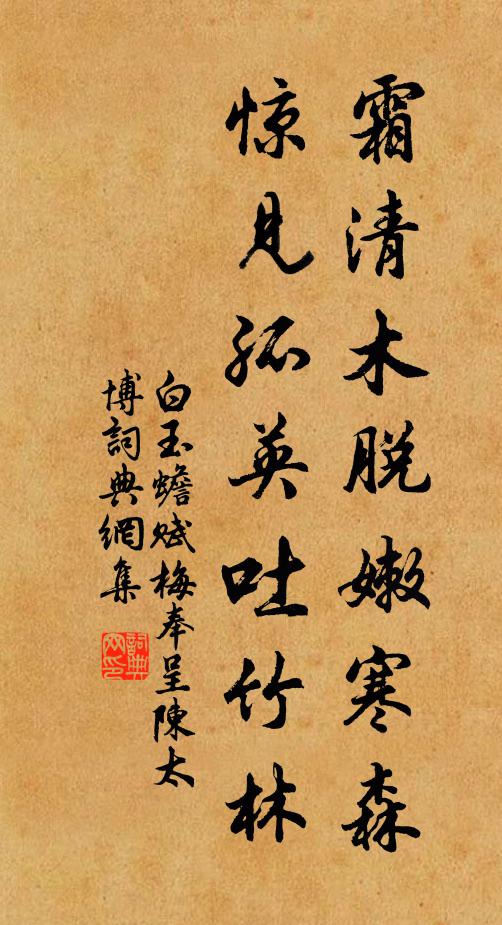 霜清木脱嫩寒森
惊见孤英吐竹林
白玉蟾赋梅奉呈陳太
博詞典網集
詞典網印